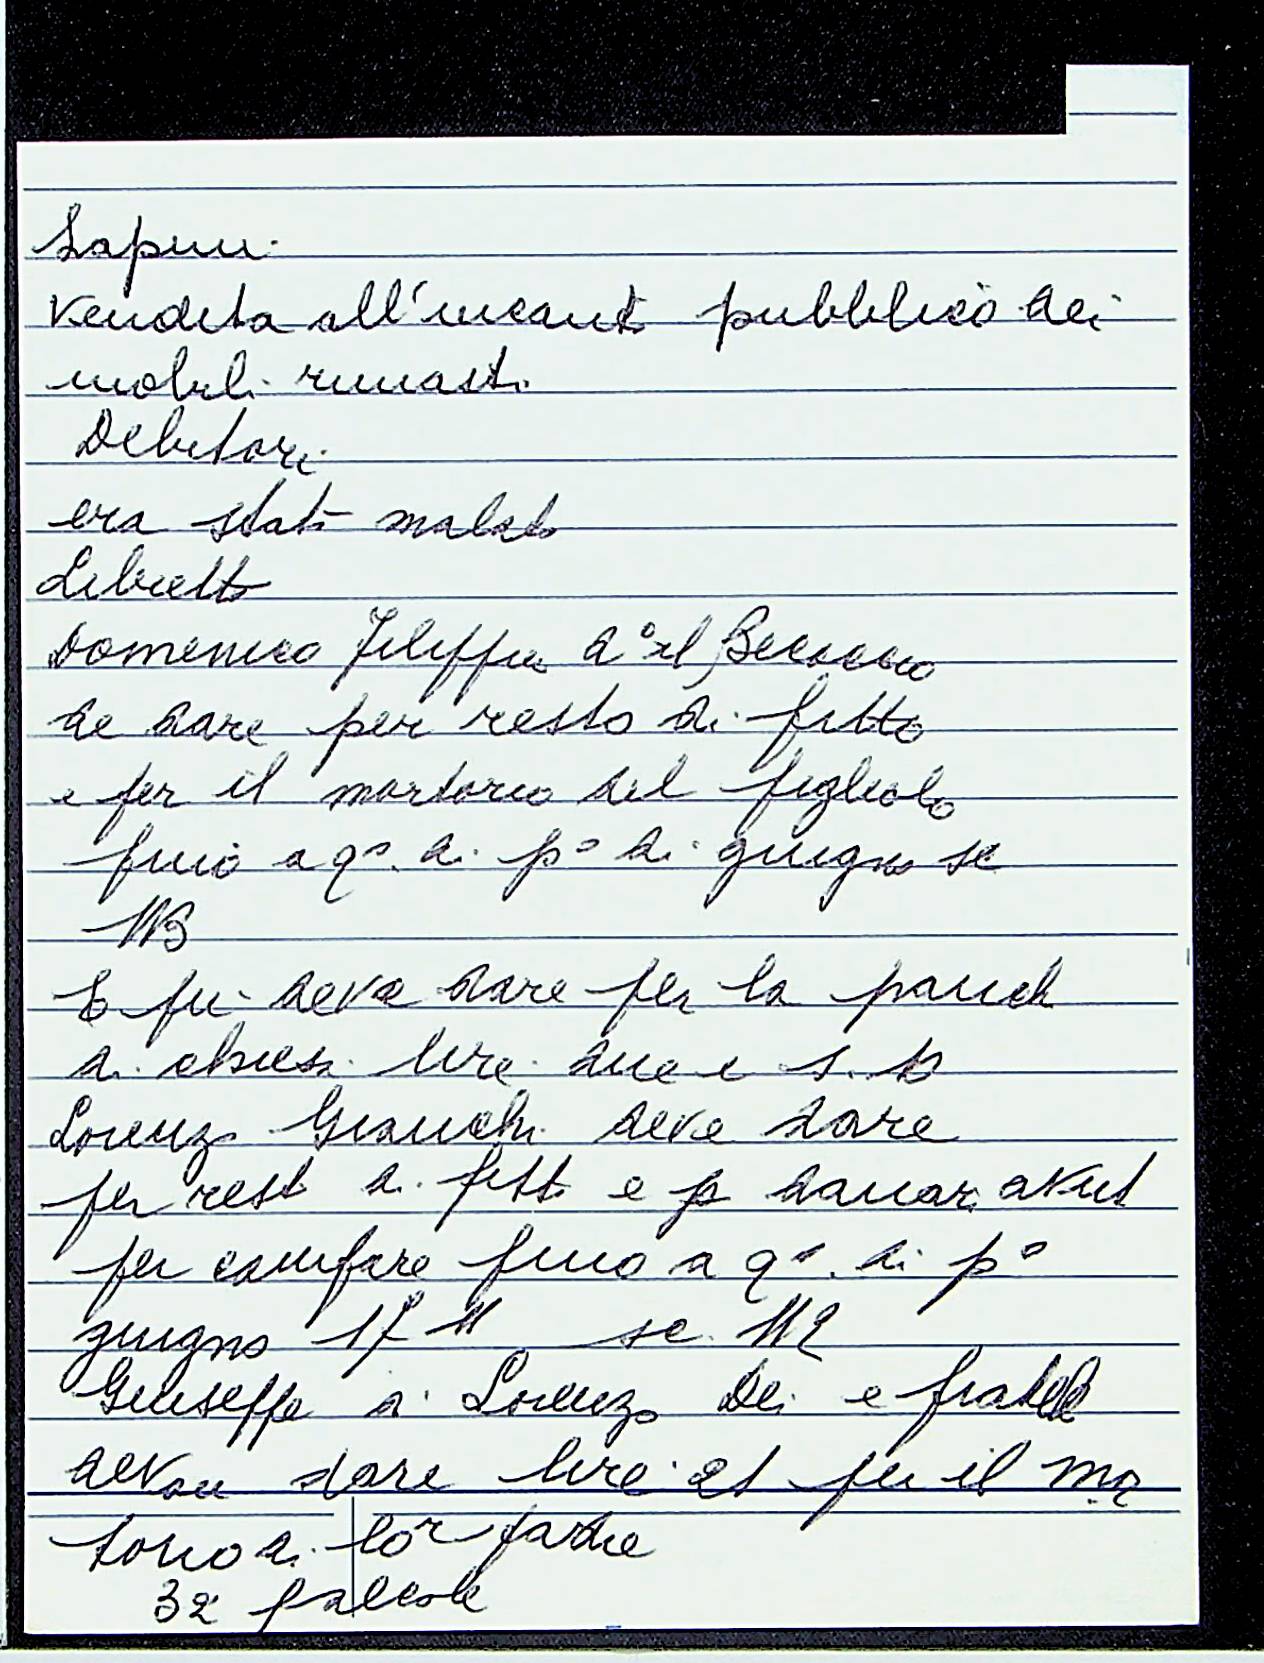 Lapini
Vendita all'incanto pubblico dei
mobili rimasti
Debitori
era stato malato
Libretto
Domenico Filippi d° il
de dare per resto di fitto
e per il mortorio del figliolo
fino a q°. di p° di giugno sc
113
E più deve dare per la
di lire due e s.
Lorenzo Bianchi deve dare
per resto di fitto e p danari avuti
per campare fino a q°. di p°
giugno sc. 112
Giuseppe di Lorenzo Dei e fratelli
devon dare lire 21 per il mor
torio di lor padre
32 falcole